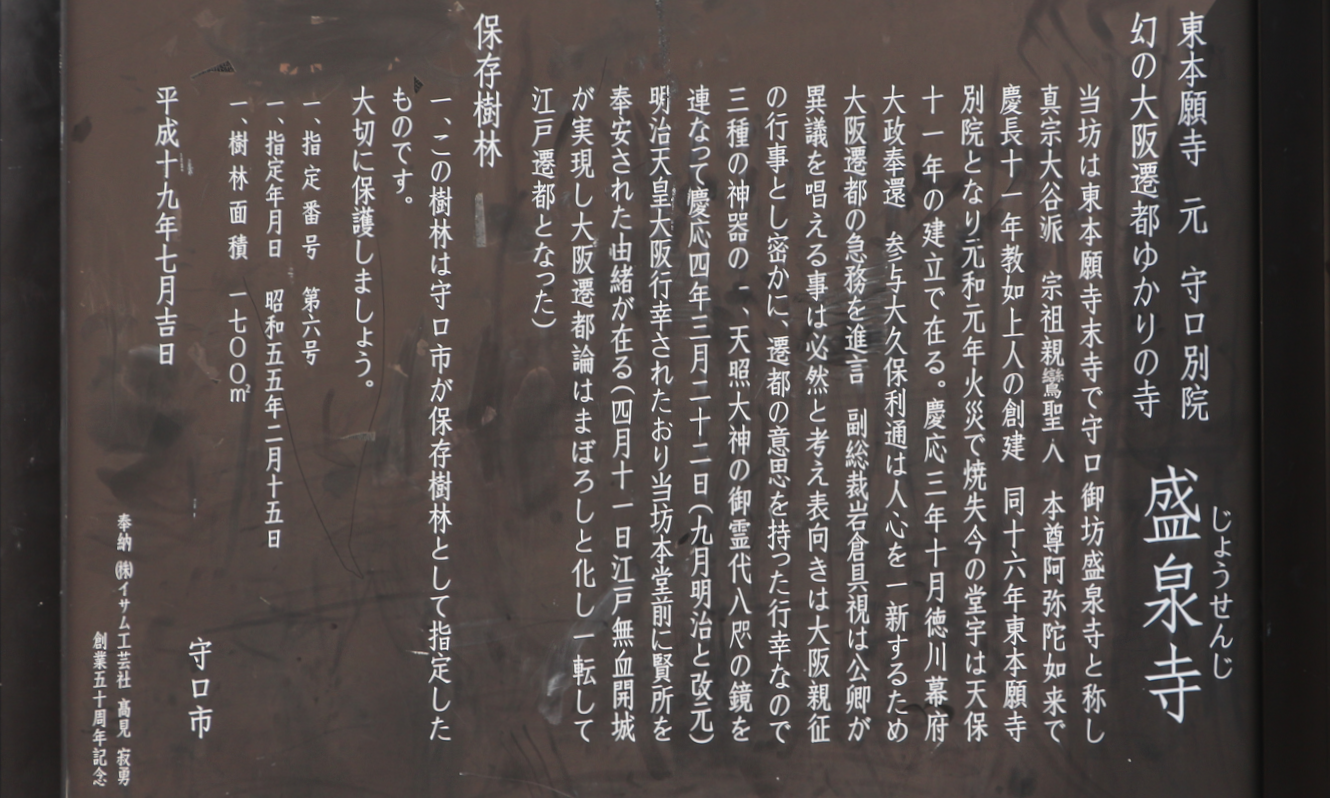 東本願寺 元 守口別院
幻の大阪遷都ゆかりの寺
じょうせんじ
盛泉寺
当坊は東本願寺末寺で守口御坊盛泉寺と称し
真宗大谷派 宗祖親鸞聖人 本尊阿弥陀如来で
慶長十一年教如上人の創建 同十六年東本願寺
別院となり元和元年火災で焼失今の堂宇は天保
十一年の建立で在る。慶応三年十月徳川幕府
大政奉還 参与大久保利通は人心を一新するため
大阪遷都の急務を進言 副総裁岩倉具視は公卿が
異議を唱える事は必然と考え表向きは大阪親征
の行事とし密かに、遷都の意思を持った行幸なので
三種の神器の一、天照大神の御霊代八咫の鏡を
連なって慶応四年三月二十二日(九月明治と改元)
明治天皇大阪行幸されたおり当坊本堂前に賢所を
奉安された由緒が在る(四月十一日江戸無血開城
が実現し大阪遷都論はまぼろしと化し一転して
江戸遷都となった)
保存樹林
一、この樹林は守口市が保存樹林として指定した
ものです。
大切に保護しましょう。
一、指定番号 第六号
一、指定年月日 昭和五五年二月十五日
一、樹林面積 一七〇〇㎡
守口市
平成十九年七月吉日
奉納 ㈱イサム工芸社 高見 寂勇
創業五十周年記念